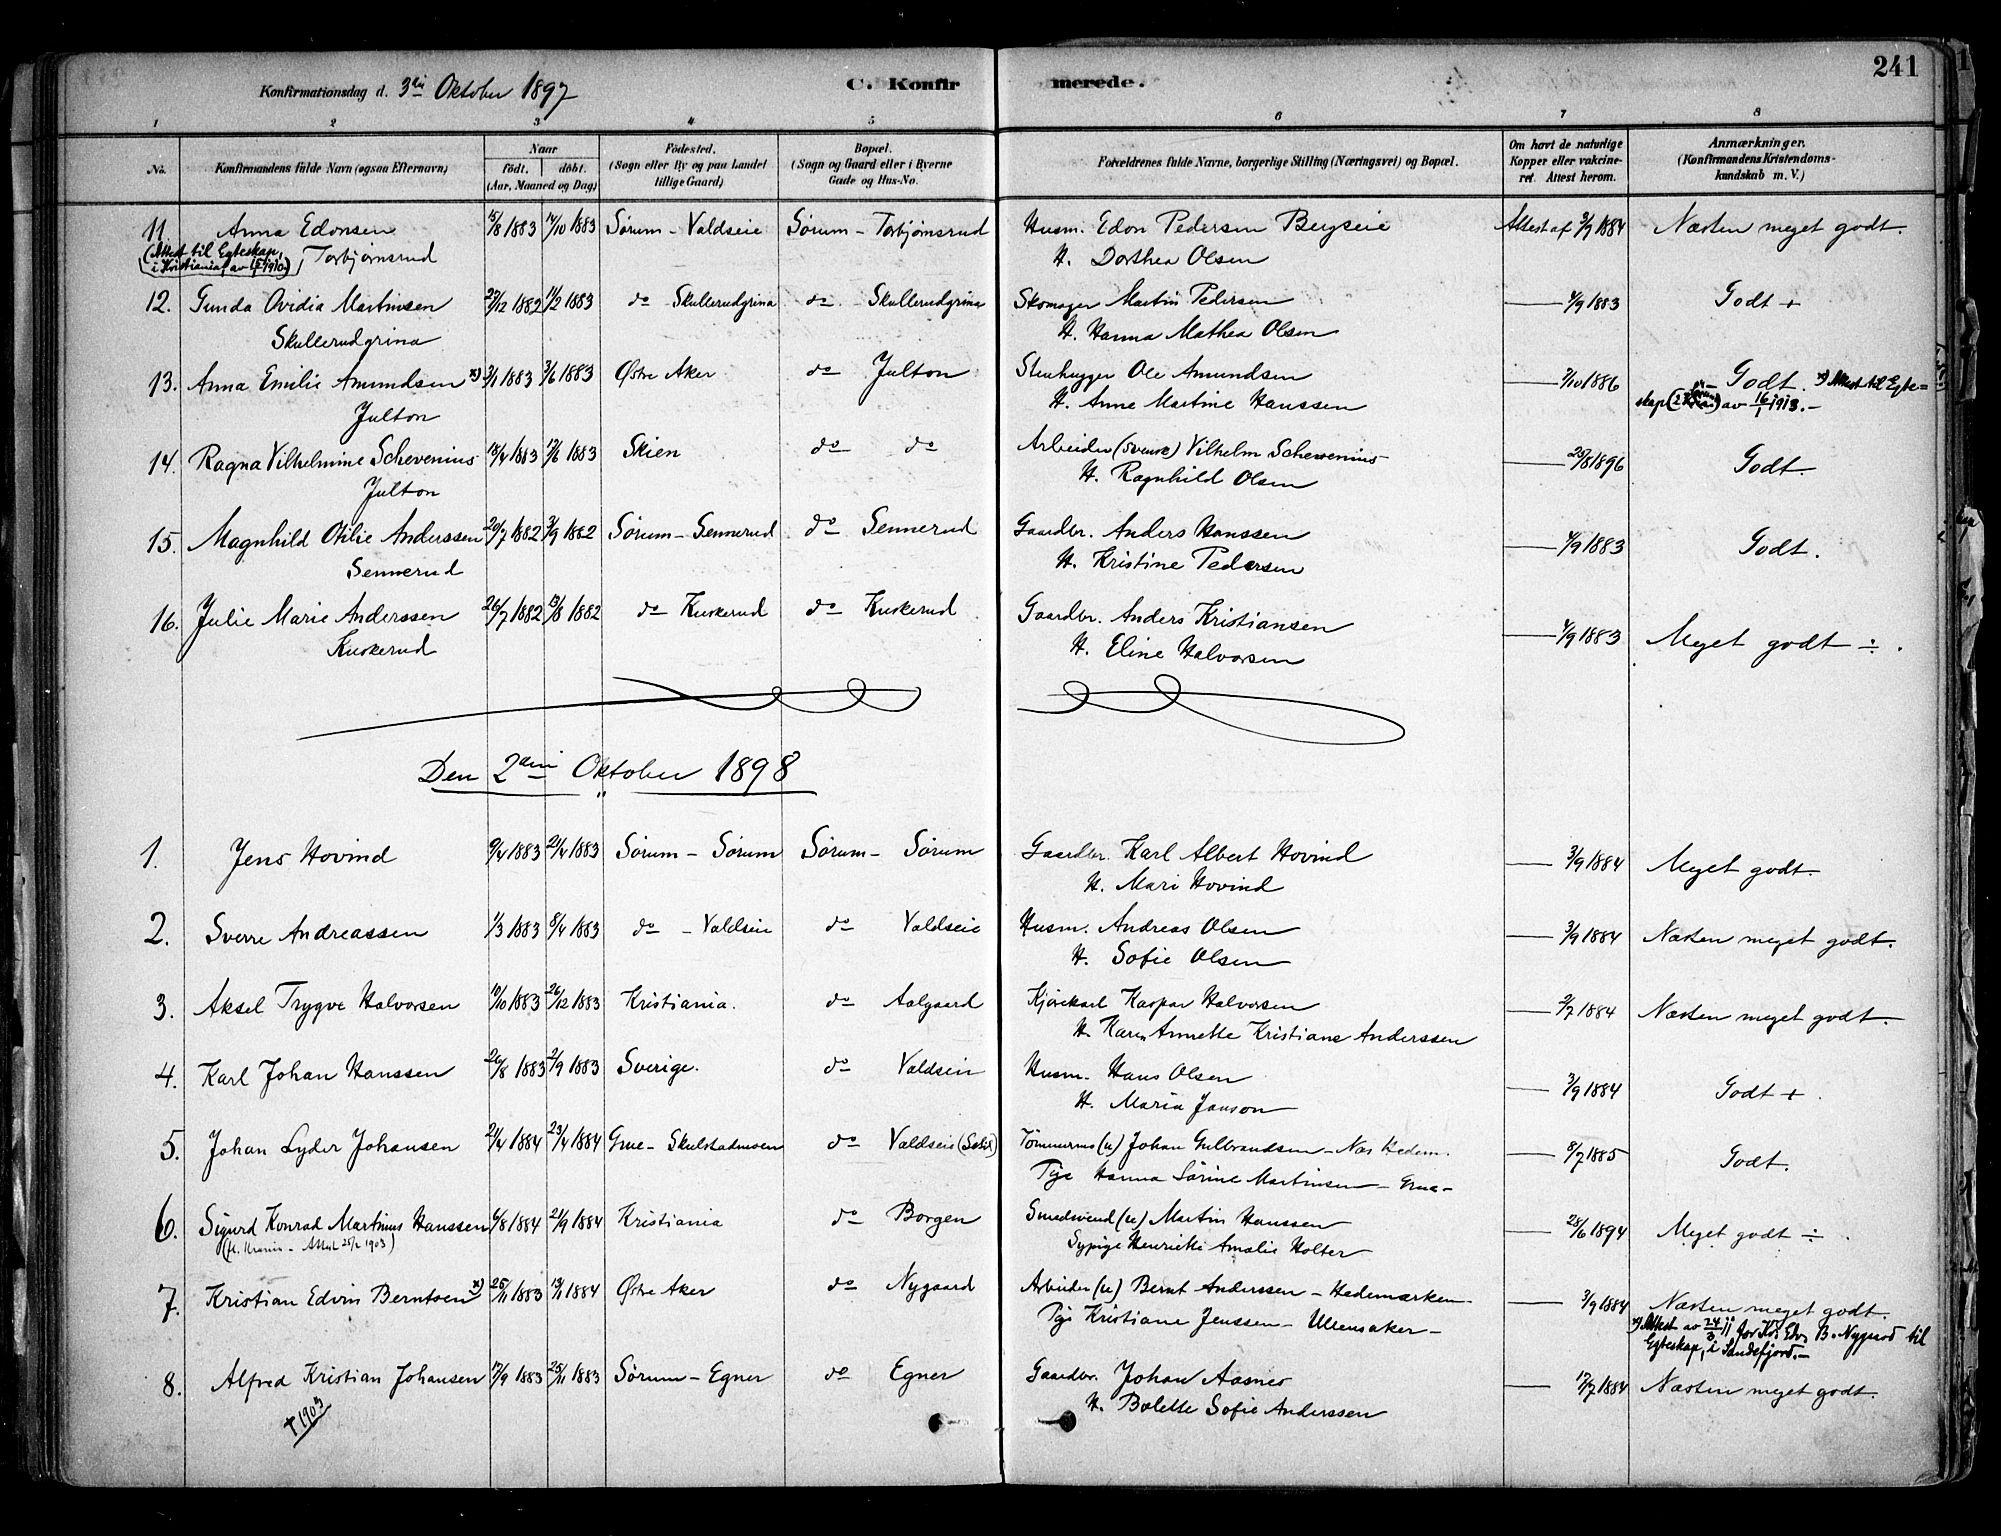 241
Konfirmationsdag d. 3die Oktober 1897
C. Konfirmerede.
1 2 3 4 5 6 7 8
No. Konfirmandens fulde Navn (ogsaa Efternavn) Naar født. døbt. (Aar, Maaned og Dag) Fødested. (Sogn eller By og paa Landet tillige Gaard) Bopæl. (Sogn og Gaard eller i Byerne Gade og Hus-No. Forældrenes fulde Navne, borgerlige Stilling (Næringsvei) og Bopæl. Om havt de naturlige Kopper eller vakcineret. Attest herom. Anmærkninger. (Konfirmandens Kristendomskundskab m. V.)
11. Anna Edonsen 15/8 1883 14/10 1883 Sørum - Valdseie Sørum - Torbjørnsrud Husm. Edon Pedersen Bergseie Attest af 3/9 1884 Næsten meget godt.
(Attest til Egteskap, i Kristiania av 15/1 1910) Torbjørnsrud H. Dorthea Olsen
12. Gunda Ovidia Martinsen 27/12 1882 11/2 1883 do Skullerudgrina do Skullerudgrina Skomager Martin Pedersen — 4/9 1883 Godt +
Skullerudgrina H. Hanna Mathea Olsen
13. Anna Emilie Amundsen x) 3/1 1883 3/6 1883 Østre Aker do Julton Stenhugger Ole Amundsen — 7/10 1886 Godt. x) Attest til Egte-
Julton H. Anne Martine Hanssen skap av 16/1 1913.-
14. Ragna Vilhelmine Schevenius 18/4 1883 17/6 1883 Skien do do Arbeider (svensk) Vilhelm Schevenius — 25/8 1896 Godt.
Julton H. Ragnhild Olsen
15. Magnhild Otilie Anderssen 20/7 1882 3/9 1882 Sørum - Sennerud do Sennerud Gaardbr. Anders Hanssen — 4/9 1883 Godt.
Sennerud H. Kristine Pedersen
16. Julie Marie Anderssen 26/7 1882 13/8 1882 do Kuskerud do Kuskerud Gaardbr. Anders Kristiansen — 4/9 1883 Meget godt ÷.
Kuskerud H. Eline Halvorsen
Den 2den Oktober 1898
1. Jens Hovind 9/4 1883 21/4 1883 Sørum - Sørum Sørum - Sørum Gaardbr. Karl Albert Hovind — 3/9 1884 Meget godt.
H. Mari Hovind
2. Sverre Andreassen 1/3 1883 8/4 1883 do - Valdseie do Valdseie Husm. Andreas Olsen — 3/9 1884 Næsten meget godt.
H. Sofie Olsen
3. Aksel Trygve Halvorsen 10/10 1883 26/12 1883 Kristiania. do Aalgaard Kjørekarl Kaspar Halvorsen — 2/7 1884 Næsten meget godt.
H. Karen Annette Kristiane Anderssen
4. Karl Johan Hanssen 26/8 1883 2/9 1883 Sverige. do Valdseie Husm. Hans Olsen — 3/9 1884 Godt +.
H. Maria Janson
5. Johan Lyder Johansen 21/4 1884 23/4 1884 Grue - Skulstadmoen do Valdseie Tømmerms (u) Johan Gulbrandsen - Nes Hedem. — 8/7 1885 Godt.
Pige Hanna Sørine Martinsen - Grue -
6. Sigurd Konrad Martinius Hanssen 6/8 1884 21/9 1884 Kristiania do Borgen Smedsvend (u) Martin Hanssen — 28/6 1894 Meget godt ÷.
Attest 25/2 1903) Sypige Henriette Amalie Holter
7. Kristian Edvin Berntsen x) 25/11 1883 13/1 1884 Østre Aker do Nygaard Arbeider (u) Bernt Anderssen - Hedemarken — 3/9 1884 Næsten meget godt.
Pige Kristiane Jenssen - Ullensaker - x) Attest av 24/3 11 for Kr. Edv. B. Nygaard til
Egteskap, i Sandefjord.-
8. Alfred Kristian Johansen 17/9 1883 25/11 1883 Sørum - Egner do Egner Gaardbr. Johan Aasnes — 17/7 1884 Næsten meget godt.
† 1903 H. Bolette Sofie Anderssen